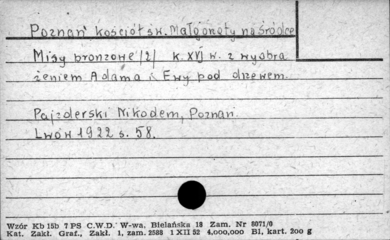 Poznań kościół św. Małgorzaty na Śródce
Misy bronzowe /2/ k. XVI w. z wyobra
żeniem Adama i Ewy pod drzewem.
Pajzderski Nikodem, Poznań.
Lwów 1922 s. 58.
Wzór Kb 15b 7 PS C.W.D. W-wa, Bielańska 18 Zam. Nr 8071/0
Kat. Zakł. Graf., Zakł. 1, zam. 2588 1 XII 52 4,000,000 Bl. kart. 200 g